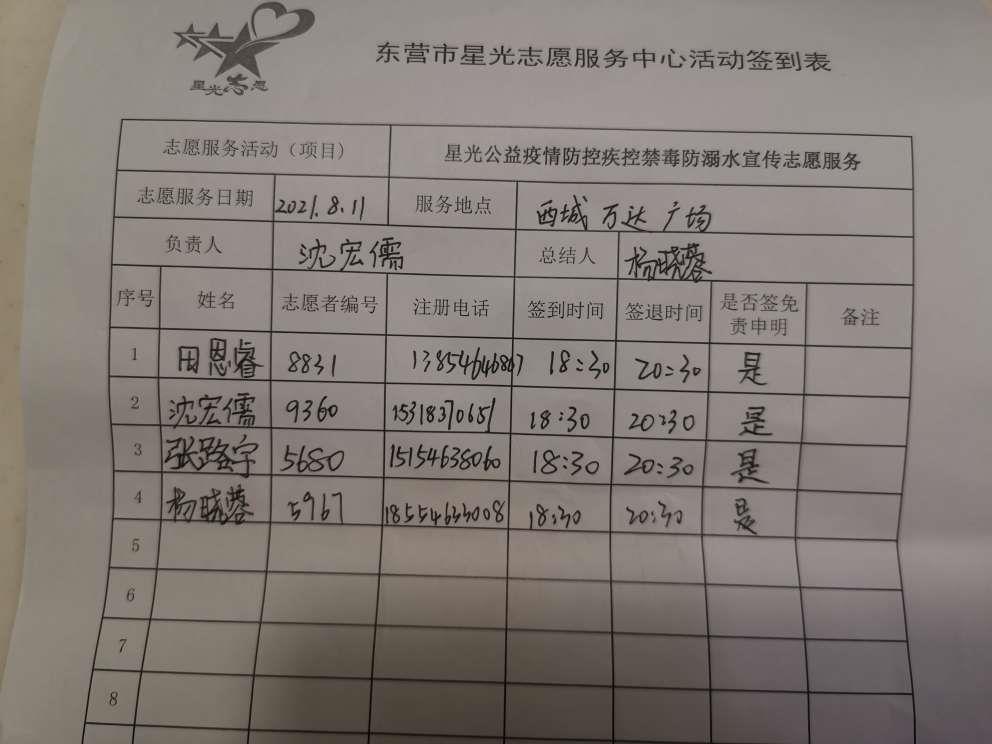 星光志愿
东营市星光志愿服务中心活动签到表
志愿服务活动（项目） 星光公益疫情防控疾控禁毒防溺水宣传志愿服务
志愿服务日期 2021.8.11 服务地点 西城万达广场
负责人 沈宏儒 总结人 杨晓蓉
序号 姓名 志愿者编号 注册电话 签到时间 签退时间 是否签免责申明 备注
1 田恩睿 8831 13854646867 18:30 20:30 是
2 沈宏儒 9360 15318370651 18:30 20:30 是
3 张路宇 5680 15154638060 18:30 20:30 是
4 杨晓蓉 5967 18554633008 18:30 20:30 是
5
6
7
8